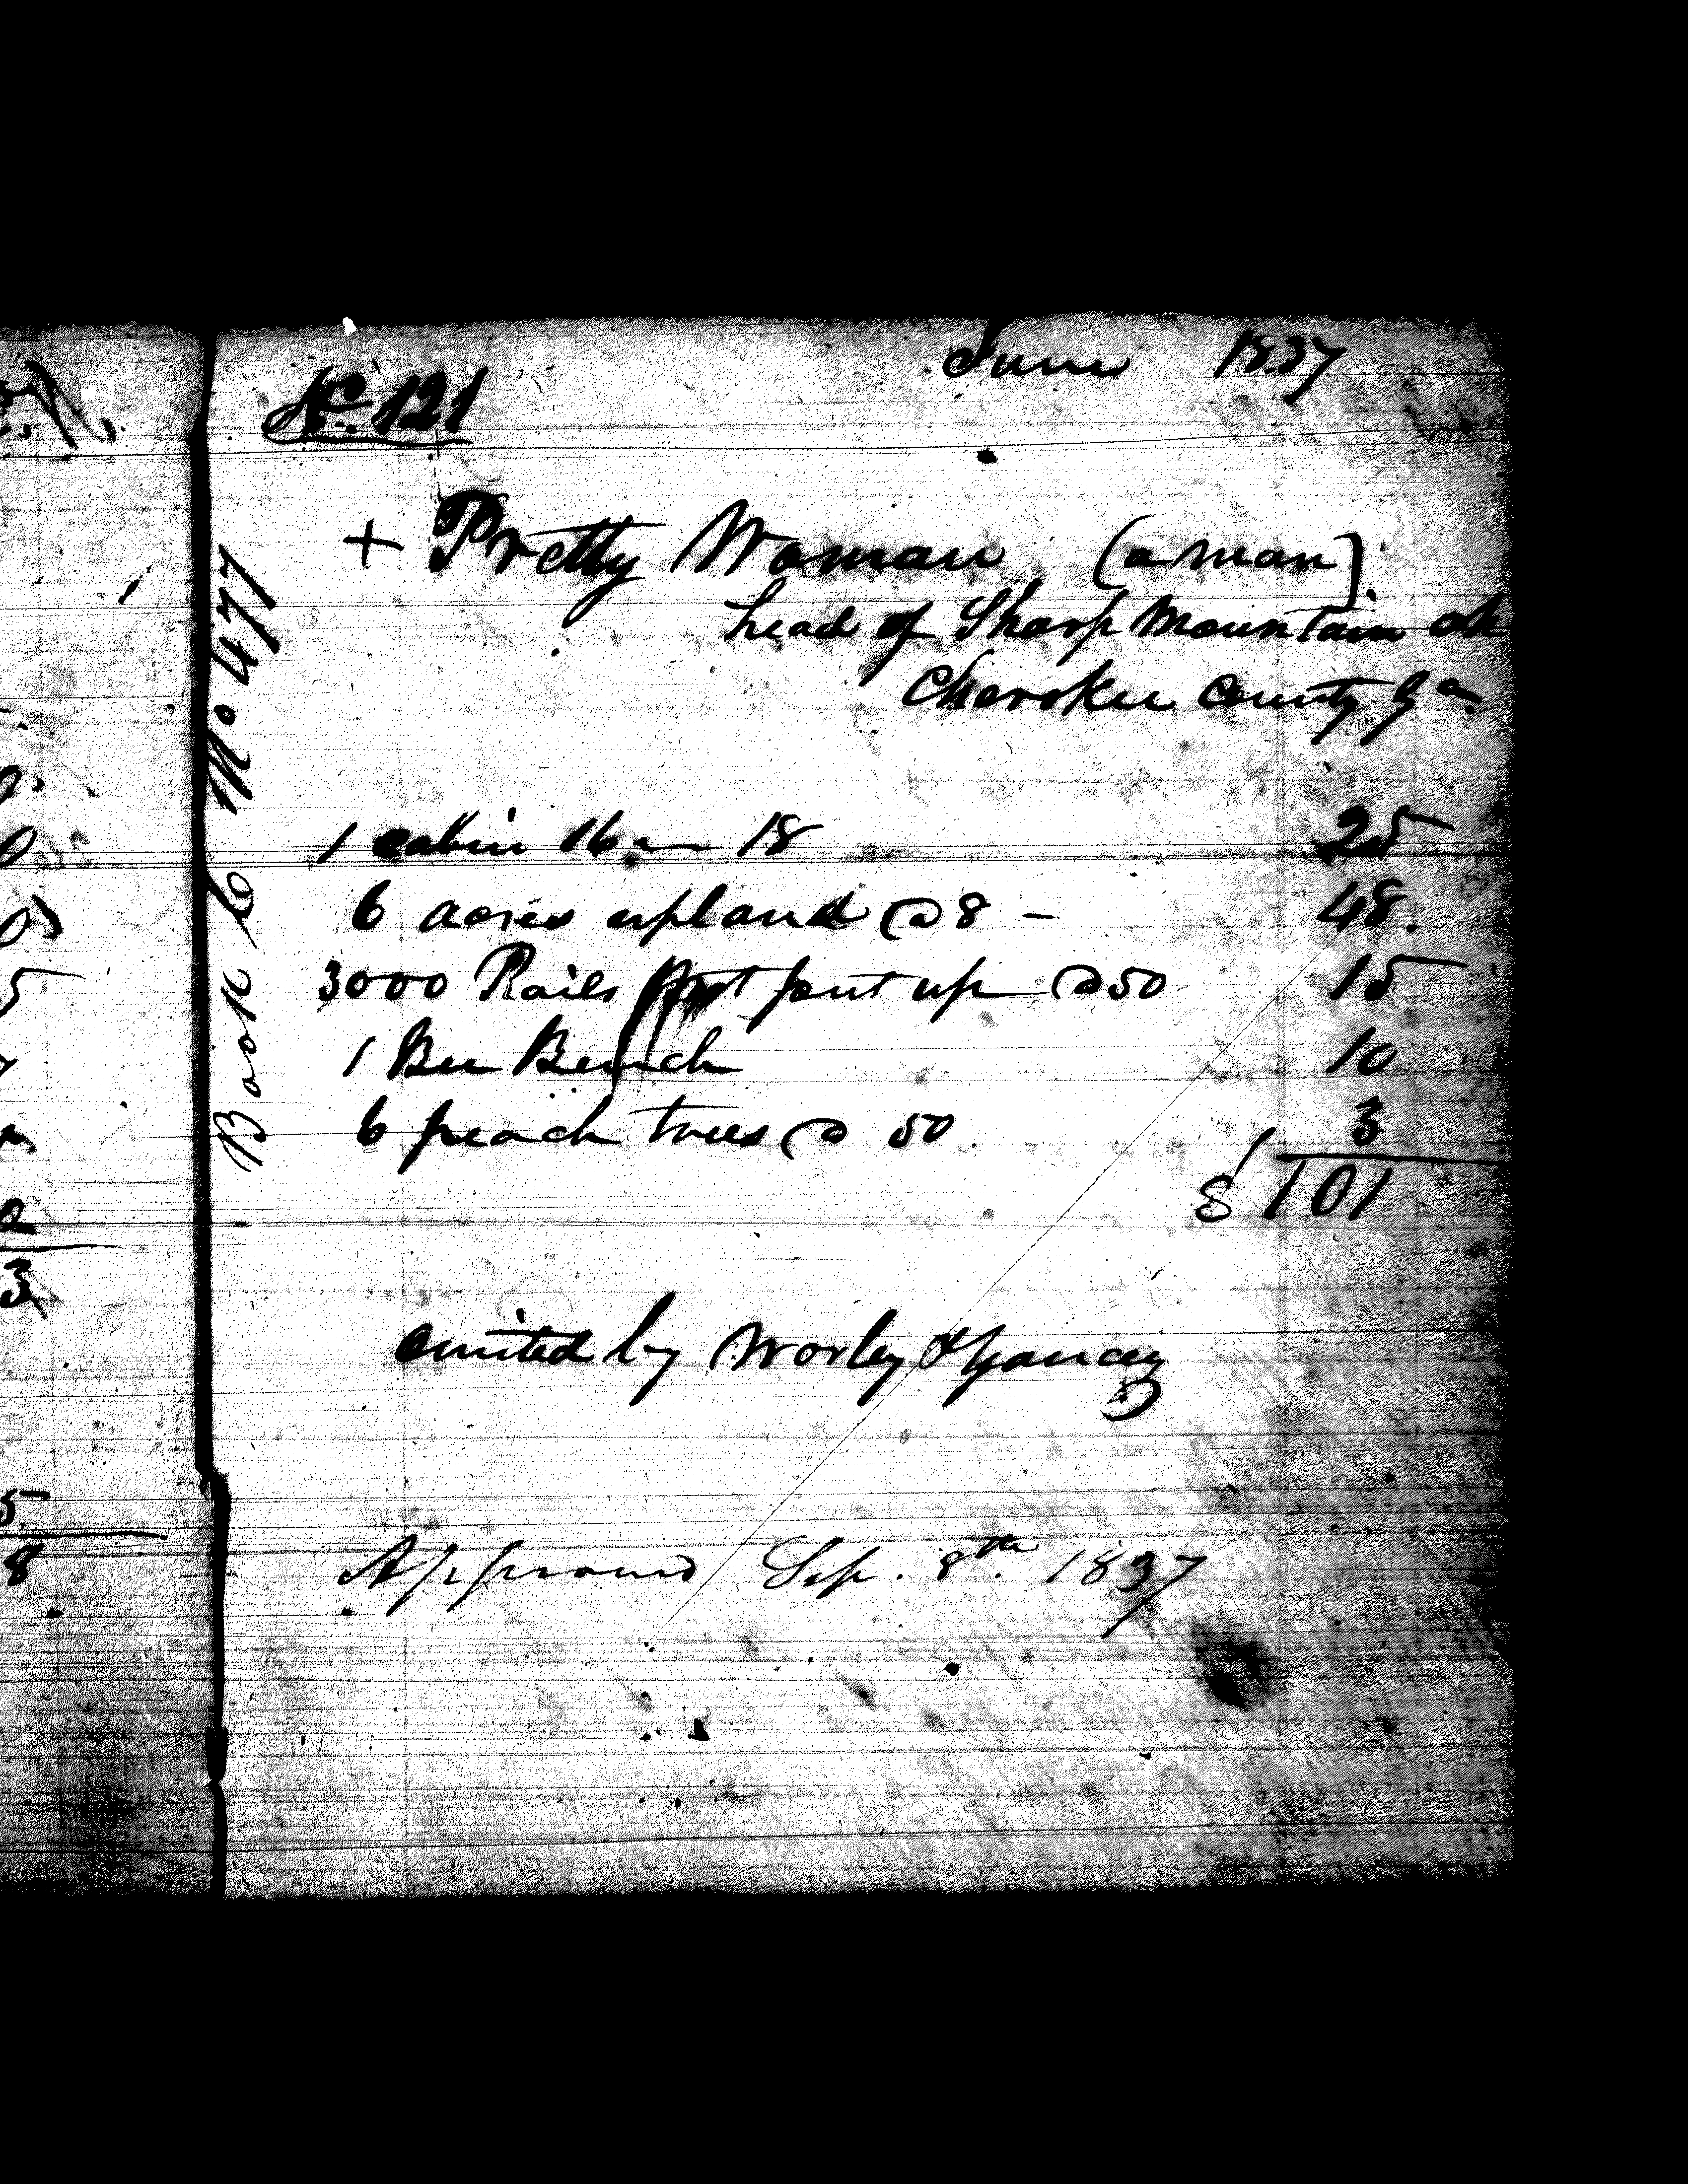 June 1837
No. 121
+ Pretty Woman (a man).
head of Sharp Mountain ck
Cherokee county Ga.
Book C No 477
1 cabin 16 18 25
6 acres upland @ 8 - 48.
3000 Rails put up @ 50 15
1 Bee Bench 10
6 peach trees @ 50. 3
$ 101
omited by Worley & Yancey
Approved Sep. 8th. 1837